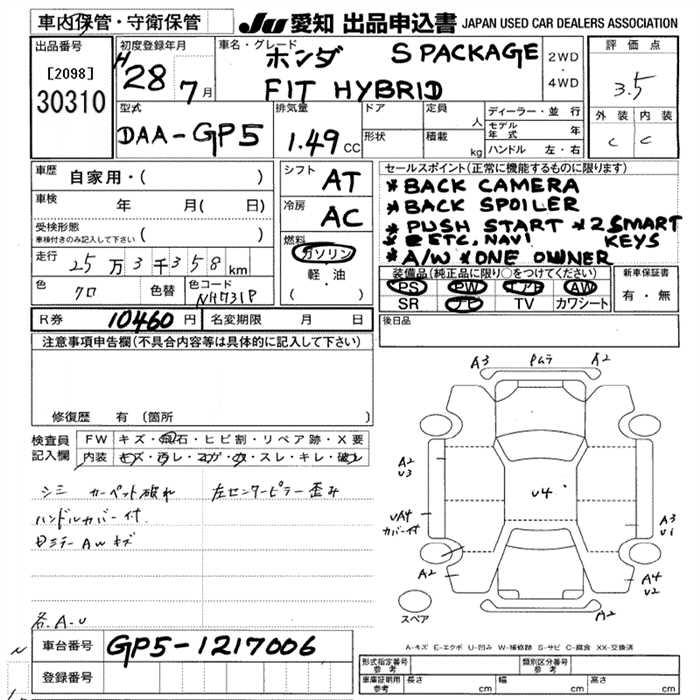 車内保管・守衛保管
JU 愛知 出品申込書 JAPAN USED CAR DEALERS ASSOCIATION
出品番号
[2098]
30310
初度登録年月
H28 7月
車名・グレード
ホンダ S PACKAGE
FIT HYBRID
2WD
・
4WD
評価点
3.5
外装 内装
C C
型式
DAA-GP5
排気量
1.49 CC
ドア
形状
定員 人
積載 kg
ディーラー・並行
モデル年式 年
ハンドル 左・右
車歴
自家用・( )
車検 年 月( 日)
受検形態
車検付きのみ記入して下さい ( )
走行 25万3千358km
色 クロ 色替 色コード NH731P
シフト AT
冷房 AC
燃料
ガソリン
軽・油
( ・ )
セールスポイント(正常に機能するものに限ります)
*BACK CAMERA
*BACK SPOILER
*PUSH START *2 SMART KEYS
* ETC, NAVI
*A/W *ONE OWNER
装備品(純正品に限り○をつけてください)
PS PW エアB AW
SR ナビ TV カワシート
新車保証書
有・無
R券 10460円 名変期限 月 日
後日品
注意事項申告欄(不具合内容等は具体的に記入して下さい)
修復歴 有(箇所 )
検査員記入欄
FW キズ・飛石・ヒビ割・リペア跡・X要
内装 キズ・汚レ・コゲ・穴・スレ・キレ・破レ
シミ カーペット破れ 左センターピラー歪み
ハンドルカバー付
ミラー AW キズ
各A.U
A3 A2
A2
U3
U4
UA4
カバー付
A3
U1
A2
A4
U2
スペア
A-キズ E-エクボ U-凹み W-補修跡 S-サビ C-腐食 XX-交換済
車台番号 GP5-1217006
登録番号
形式指定番号 参考
類別区分番号 参考
車庫証明用 参考 長さ cm 幅 cm 高さ cm